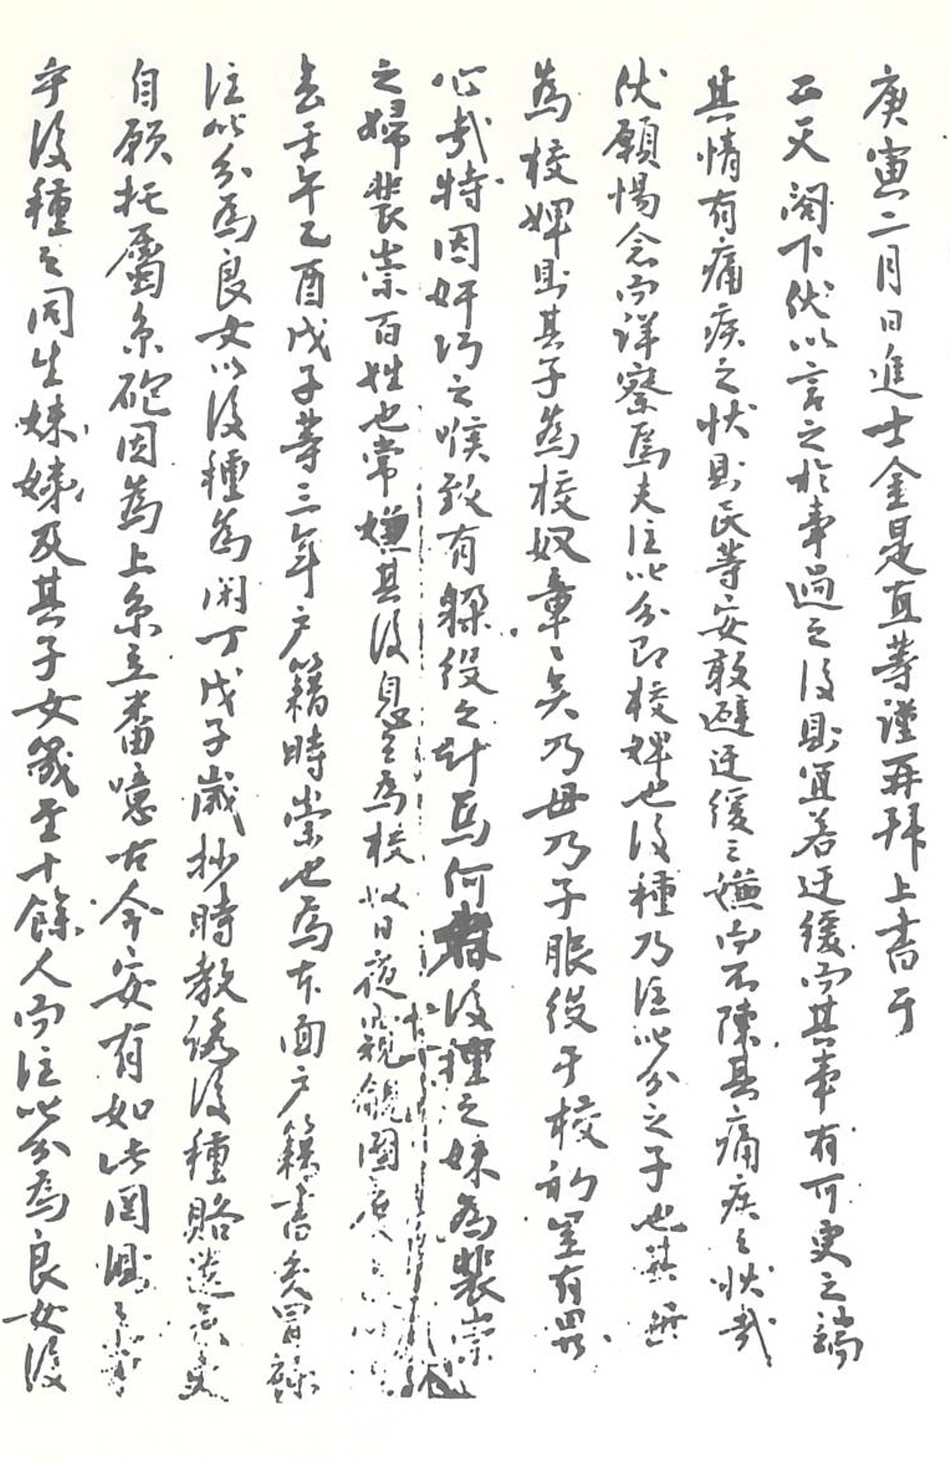 庚寅二月日進士金是直等謹再拜上書于
二天閤下伏以言之於事過之後則宜若迂緩而其事有可更之端
其情有痛疾之狀則民等安敢避迂緩之嫌而不陳其痛疾之狀哉
伏願惕念而詳察焉夫注叱分即校婢也後種乃注叱分之子也其母
為校婢則其子為校奴章章矣乃母乃子服役于校初豈有異
心哉特因奸巧之喉致有躲役之計焉何者後種之妹為裴崇
之婦裴崇百姓也常嫌其後息之為校奴日夜窺覦圖
去壬午乙酉戊子等三年戶籍時崇也為本面戶籍書矣冒錄
注叱分為良女以後種為閑丁戊子歲抄時教誘後種賂
自願托屬京砲因為上京立番噫古今安有如此罔
乎後種之同生妹娣及其子女幾至十餘人而注叱分為良女後